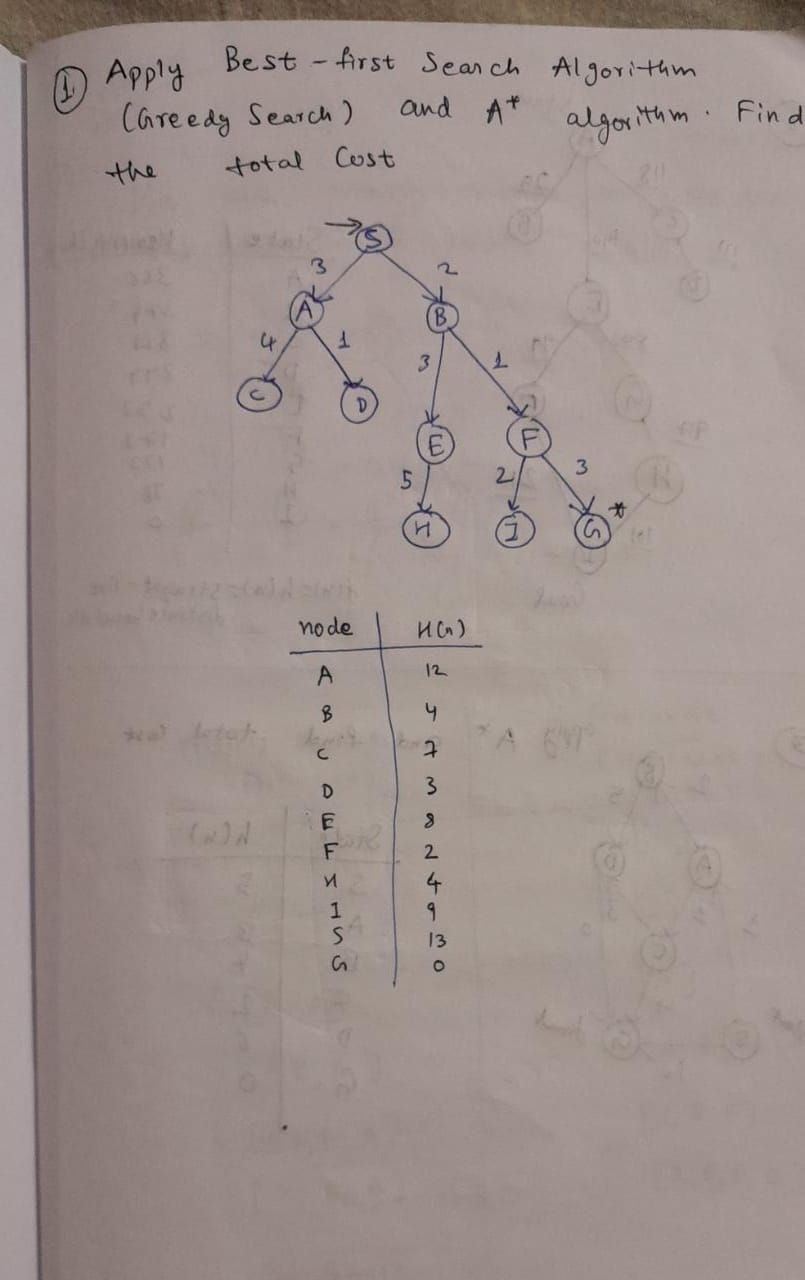 ① Apply Best-first Search Algorithm
(Greedy Search) and A* algorithm. Find
the total Cost
S
3 2
A B
4 1 3 1
C D
E F
5 2 3
H I G *
node H(n)
A 12
B 4
C 7
D 3
E 8
F 2
H 4
I 9
S 13
G 0